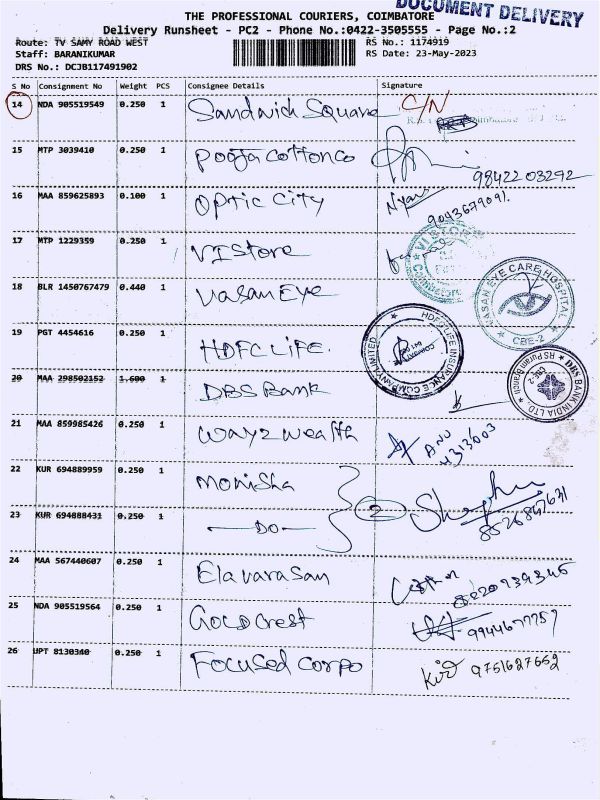 DOCUMENT DELIVERY
THE PROFESSIONAL COURIERS, COIMBATORE
Delivery Runsheet - PC2 - Phone No.:0422-3505555 - Page No.:2
Route: TV SAMY ROAD WEST RS No.: 1174919
Staff: BARANIKUMAR RS Date: 23-May-2023
DRS No.: DCJB117491902
S No Consignment No Weight PCS Consignee Details Signature
14 NDA 905519549 0.250 1 Sandwich Square C/N
15 MTP 3039410 0.250 1 Pooja Cottonco 9842203292
16 MAA 859625893 0.100 1 Optic City
17 MTP 1229359 0.250 1 VI Store
18 BLR 1450767479 0.440 1 Vasan Eye
VASAN EYE CARE HOSPITAL
CBE-2
19 PGT 4454616 0.250 1 HDFC LIFE.
HDFC LIFE INSURANCE COMPANY LIMITED
20 MAA 298502152 1.600 1 DBS Bank
DBS BANK INDIA LTD.
RS Puram Branch
CBE-2
21 MAA 859985426 0.250 1 Way2wealth
22 KUR 694889959 0.250 1 Monisha
2
23 KUR 694888431 0.250 1 —DO—
24 MAA 567440607 0.250 1 Elavarasan
25 NDA 905519564 0.250 1 Gold Crest
26 UPT 8130340 0.250 1 Focused Corpo 9751627652